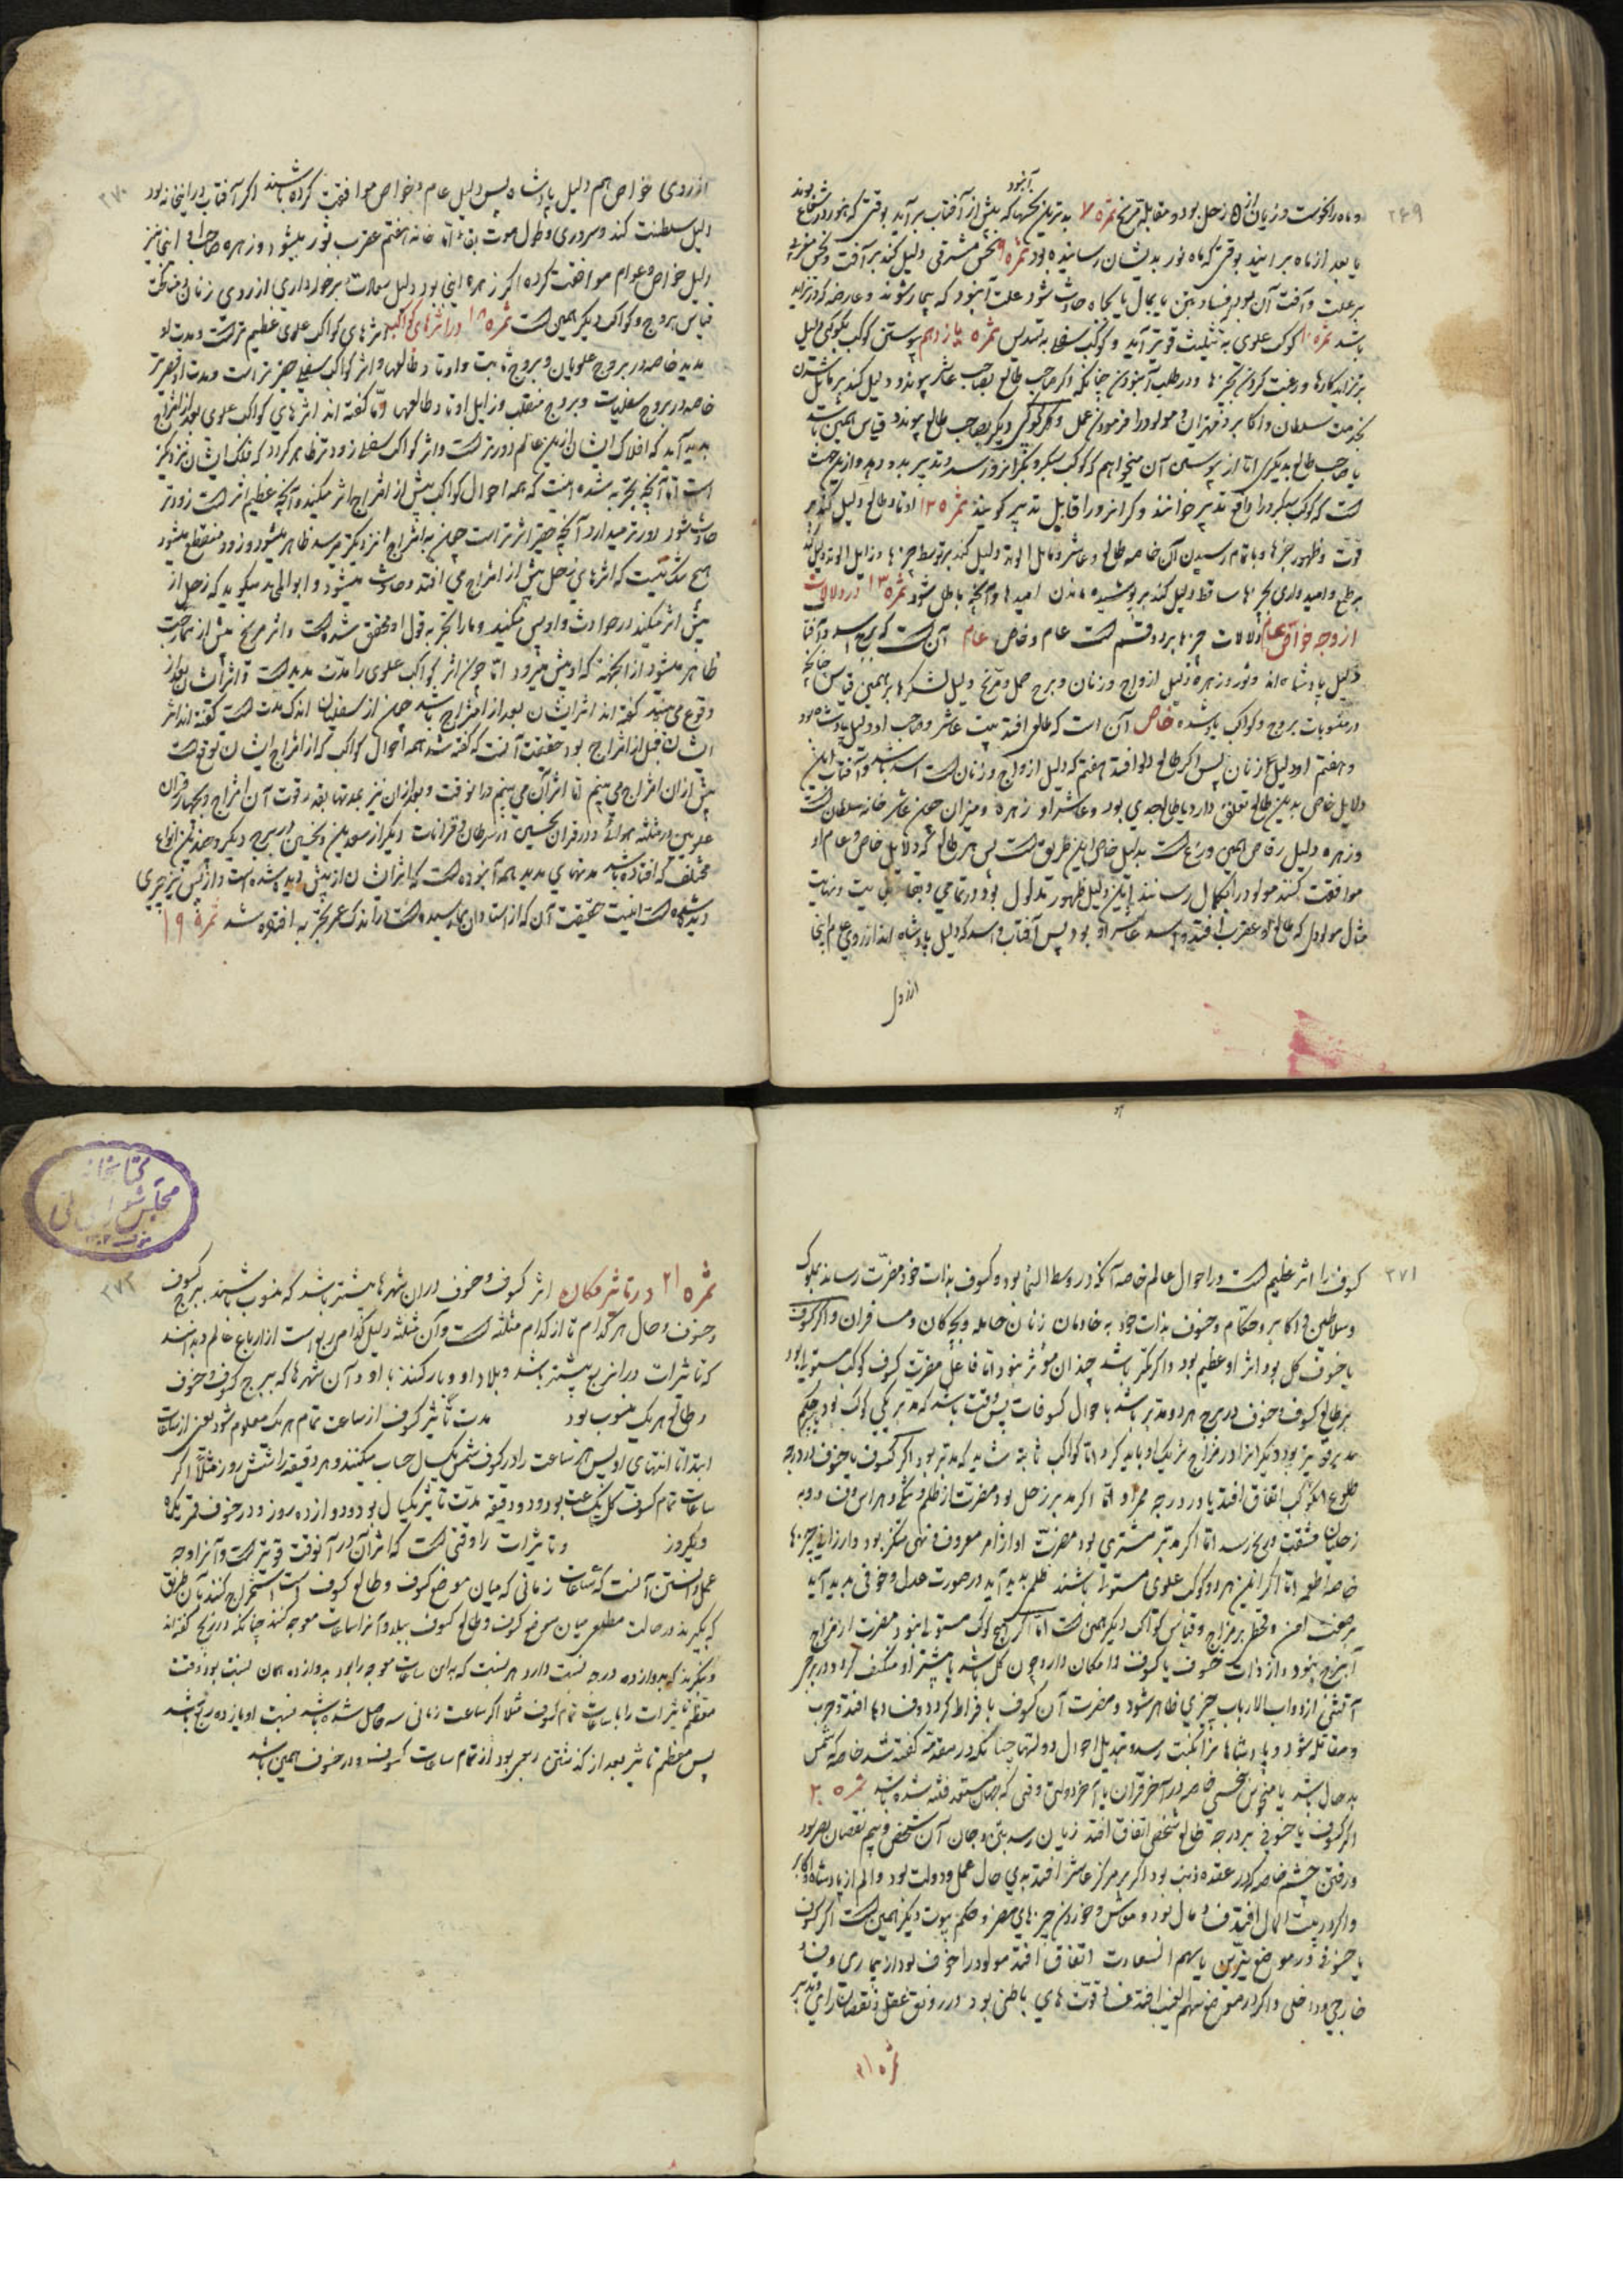 ۲۶۹
آنبود
و ماه را نحوست و زیان از زحل بود و مقابله مریخ ثمره ۷ بدترین نحسها که پیش از آفتاب برآید بوقتی که هنوز در شعاع بوند
یا بعد از ماه برآیند بوقتی که ماه نور بدیشان رسانیده بود ثمره ۹ نحس مشرقی دلیل کند بر آفت و نحس مغربی
بر علت و آفت آن بود فساد بتن یا بمال یا بجاه حادث شود علت آنبود که بیمار شوند و عارضه که در تن آید
باشد ثمره ۱۰ کوکب علوی به تثلیث قویتر آید و کوکب سفلی به تسدیس ثمره یازدهم پیوستن کوکب بکوکبی دلیل
بر تزاید کارها و رغبت کردن بچیزها و در طلب آنبودن چنانکه اگر صاحب طالع بصاحب عاشر پیوندد دلیل کند بر مایل شدن
بخدمت سلطان و اکابر و مهتران و مولود را فرمودن عمل و اگر کوکبی دیگر بصاحب طالع پیوندد قیاس همین باشد
یا صاحب طالع بدیگری اما از پیوستن آن میخواهم که کوکب سبکرو بگرانرو رسد و تدبیر بدو دهد و ازین جهت
است که کوکب سبکرو را دافع تدبیر خوانند و گرانرو را قابل تدبیر گویند ثمره ۱۲ اوتاد طالع دلیل کند بر
قوت و ظهور چیزها و باتمام رسیدن آن خاصه طالع و عاشر و مایل الوتد دلیل کند بر توسط چیزها و زایل الوتد دلیل کند
بر طمع و امیدواری بچیزها ساقط دلیل کند بر پوشیده ماندن امیدها و آنچه باطل شود ثمره ۱۳ در دلالات
از وجه خواص عام دلالات چیزها بر دو قسم است عام و خاص عام آن است که برج اسد و آفتاب
دلیل پادشاه اند و ثور و زهره دلیل ازواج و زنان و برج حمل و مریخ دلیل لشکرها بر همین قیاس چنانچه
در منسوبات بروج و کواکب یاد شده خاص آن است که طالعی افتد بیت عاشر و صاحب او دلیل پادشاه بود
و هفتم او دلیل زنان پس اگر طالع دلو افتد هفتم که دلیل ازواج و زنان است اسد باشد و آفتاب این
دلایل خاص بدین طالع تعلق دارد یا طالع جدی بود و عاشر او زهره و میزان چون عاشر خانه سلطان است
و زهره دلیل رقاص همین وضع است بدلیل خاص این طریق است پس هر طالع که دلایل خاص و عام او
موافقت کنند مولود را بکمال رسانند این دلیل ظهور مدلول بود در تمامی و بقا بیت و نهایت
مثال مولودی که طالع او عقرب افتد و اسد عاشر او بود پس آفتاب و اسد که دلیل پادشاه اند از روی عام اینجا
از روی
۲۷۰
از روی خواص هم دلیل پادشاه پس دلیل عام و خواص موافقت کرده باشند اگر آفتاب در اینخانه بود
دلیل سلطنت کند و سروری و طول موت بقا اما خانه هفتم عقرب ثور میشود و زهره صاحب او اینجا نیز
دلیل خواص و عوام موافقت کرده اگر زهره اینجا بود دلیل سعادت برخورداری از روی زنان و مناکحت
قیاس بروج و کواکب دیگر همین است ثمره ۱۸ در اثرهای کواکب اثرهای کواکب علوی عظیم تر است و مدت او
مدید خاصه در بروج علویان و بروج ثابت و اوتاد طالعها و اثر کواکب سفلی حقیرتر است و مدت او قصیرتر
خاصه در بروج سفلیات و بروج منقلب و زایل اوتاد طالعها و گفته اند اثرهای کواکب علوی بعد از امتزاج
پدید آید که افلاک ایشان از این عالم دورتر است و اثر کواکب سفلی زودتر ظاهر گردد که فلک ایشان نزدیکتر
است اما آنچه بتجربه شده اینست که همه احوال کواکب پیش از امتزاج اثر میکند و آنچه عظیم اثر است زودتر
حادث شود دورتر میدارد آنچه حقیر اثرتر است چون به امتزاج نزدیکتر میرسد ظاهر میشود و زود منقطع میشود
هیچ شک نیست که اثرهای زحل پیش از امتزاج می افتد و حادث میشود و ابوالمحمد میگوید که زحل از
پیش اثر میکند در حوادث و او پس میکند و ما را بتجربه قول او محقق شده است و اثر مریخ پیش از ممازجت
ظاهر میشود از آنجهت که او پیش میرود اما چون اثر کواکب علوی را مدت مدید است و اثر ایشان بعد از
وقوع می بینند گفته اند اثر ایشان بعد از امتزاج باشد چون از سفلیان اندک مدت است گفته اند اثر
ایشان قبل از امتزاج بود حقیقت آنست که گفته شد همه احوال کواکب که از امتزاج ایشان توقع است
پیش از آن امتزاج می بینم اما اثر آن می بینم در آنوقت و بعد از آن نیز بمدتها بقدر قوت آن امتزاج و بچهار قران
علویین در مثلثه هوائی و در قران نحسین در سرطان و قرانات دیگر از سعدین و نحسین در برج دیگر و چندین انواع
مختلف که افتاده باشد مدتهای مدید همه آنبوده است که اثر ایشان از پیش دیده شده است و از پس نیز چیزی
دیده شده است اینست حقیقت آن که از استادان بما رسیده است در اندک عمر تجربه افتاده شد ثمره ۱۹
۲۷۱
کسوف را اثر عظیم است در احوال عالم خاصه آنکه در وسط السماء بود و کسوف بذات خود مضرت رساند بملوک
و سلاطین و اکابر و حکام و خسوف بذات خود به خادمان زنان حامله و بچه کان و مسافران و اگر کسوف
یا خسوف کل بود اثر او عظیم بود و اگر کمتر باشد چندان مؤثر نبود اما فاعل مضرت کسوف کوکب مستولی بود
بر طالع کسوف و خسوف در برج هر دو مدبر باشد با حوال کسوفات پس وقت باشد که مدبر یکی کوکب بود پس حکم
مدبر قویتر بود و دیگر انرا در مزاج شریک او باید کرد اما کواکب ثابته شاید که مدبر بود اگر کسوف یا خسوف در درجه
طلوع آن کوکب اتفاق افتد یا در درجه ممر او اما اگر مدبر زحل بود مضرت از ظلم و ستم و هراس و فساد و به
زحلیان مشقت و رنج رسد اما اگر مدبر مشتری بود مضرت او از امر معروف و نهی منکر بود و ارزانی چیزها
خاصه اطعمه اما اگر این هر دو کوکب علوی مستولی باشند ظلم پدید آید در صورت عدل و خوفی پدید آید
بر صفت امن و قحط بر مزاج و قیاس کواکب دیگر همین است اما اگر هیچ کوکب مستولی نبود مضرت از مزاج
آن برج نبود و از ذات خسوف یا کسوف و امکان دارد چون کل باشد یا بیشتر او منکسف گردد در برج
آتشی از دواب الارباب چیزی ظاهر شود و مضرت آن کسوف بافراط گردد و فسادها افتد و حرب
و مقاتله شود و پادشاهانرا نکبت رسد و تبدیل احوال دولتها چنانکه در مقدمه گفته شد خاصه که شمس
بد حال باشد یا منحوس بنحسی خاصه در آخر قران یا آخر دولتی وقتی که جهان مستعد فتنه شده باشد ثمره ۲۰
اگر کسوف یا خسوفی بر درجه طالع شخصی اتفاق افتد زیان رسد بتن و جان آن شخص و بیم نقصان بصر بود
و رفتن چشم خاصه که در عقده ذنب بود اگر بر مرکز عاشر افتد بدی حال عمل و دولت بود و الم از پادشاه و اکابر
و اگر در بیت المال افتد فساد مال بود و معاش و خوردن چیزهای مضر و حکم بیوت دیگر همین است اگر کسوف
یا خسوفی در موضع نیرین یا سهم السعادت اتفاق افتد مولود را خوف بود از بیماری و فساد
خارجی و داخلی و اگر در موضع سهم الغیب افتد فساد قوتهای باطنی بود در رونق عقل و نقصان رای و تدبیر
ثمره ۲۱
۲۷۲
کتابخانه
مجلس شورای ملی
ثمره ۲۱ در تاثیر مکان اثر کسوف و خسوف در آن شهرها بیشتر باشد که منسوب باشند ببرج کسوف
و خسوف و حال هر کدام تا از کدام مثلثه است و آن مثلثه دلیل کدام ربع است از ارباع عالم و بدانند
که تاثیرات در آن ربع بیشتر باشد و بلاد او و یار کنند با او و آن شهرها که ببرج کسوف و خسوف
و طالع هر یک منسوب بود مدت تاثیر کسوف از ساعت تمام هر یک معلوم شود یعنی از ساعات
ابتدا تا انتهای او پس هر ساعت را در کسوف شمس یکسال حساب میکنند و هر دقیقه را شش روز مثلا اگر
ساعات تمام کسوف کل یک ساعت بود و دو دقیقه مدت تاثیر یکسال بود و دوازده روز و در خسوف قمر یکماه
و یکروز و تاثیرات را وقتی است که اثر آن در آنوقت قویتر است و آنرا وجه
عمل دانستن آنست که ساعات زمانی که میان موضع کسوف و طالع کسوف است استخراج کنند بآن طریق
که بگیرند در حالت میان موضع کسوف و طالع کسوف ببلد و آنرا ساعات معوجه کنند چنانکه در زیج گفته اند
و بنگرند که بدوازده درجه نسبت دارد هر نسبت که به این ساعات معوجه را بود بدوازده همان نسبت بود وقت
معظم تاثیرات را با ساعات تمام کسوف مثلا اگر ساعت زمانی سه حاصل شده باشد نسبت او با دوازده ربع باشد
پس معظم تاثیر بعد از گذشتن ربعی بود از تمام ساعات کسوف و در خسوف همین باشد